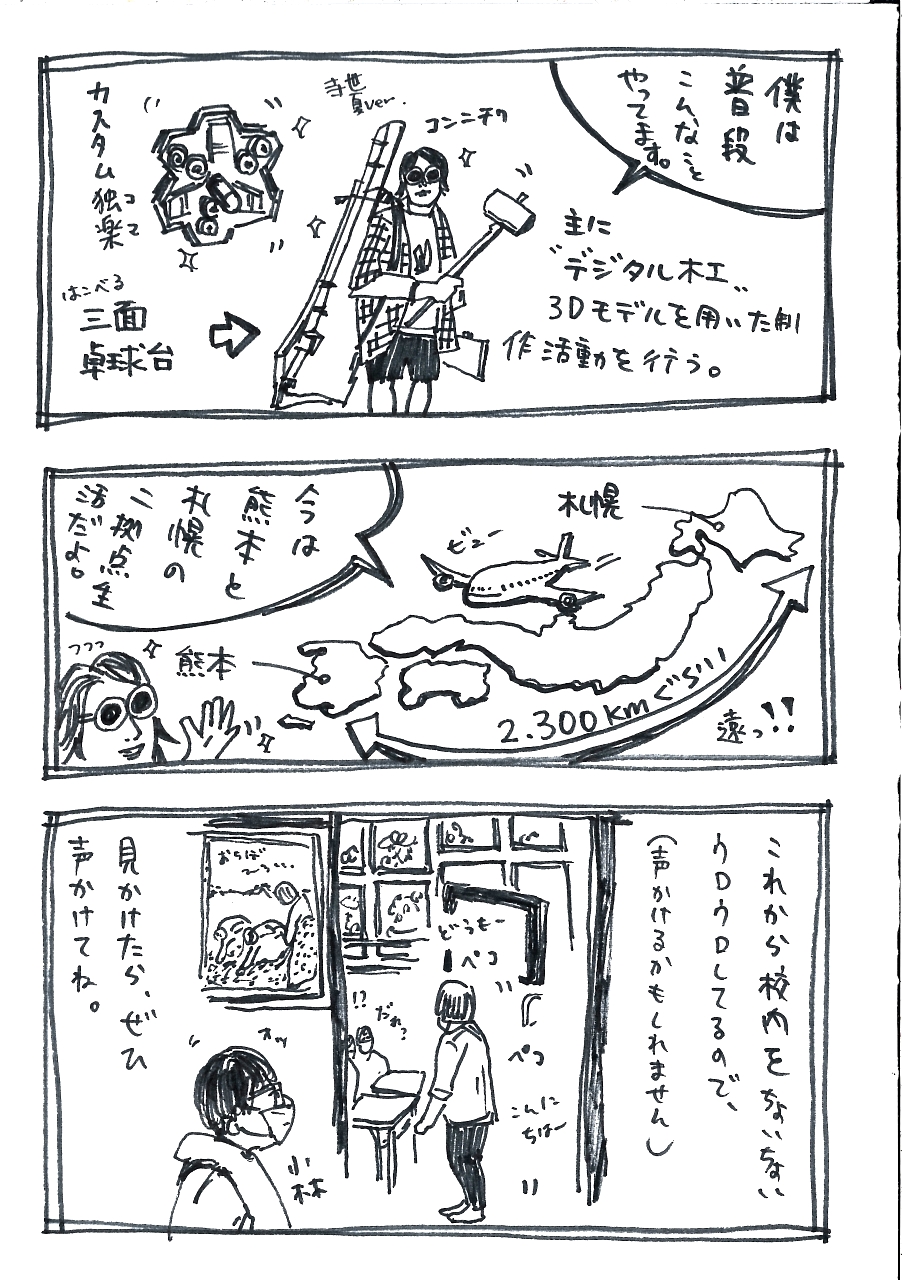 僕は
普段
こんなこと
やってます。
主に
"デジタル木工"
3Dモデルを用いた制
作活動を行う。
コンニチワ
夏ver.
カスタム独楽
コマ
はこべる
三面
卓球台
今は
熊本と
札幌の
二拠点生
活だよ。
札幌
ビュー
熊本
フフフ
2.300kmぐらい
遠っ!!
これから校内をちょいちょい
ウロウロしてるので、
(声かけるかもしれません)
どうもー
ペコ
ペコ
こんに
ちはー
!?
だれ?
おちば
ひろい...
オッ
小林
見かけたら、ぜひ
声かけてね。